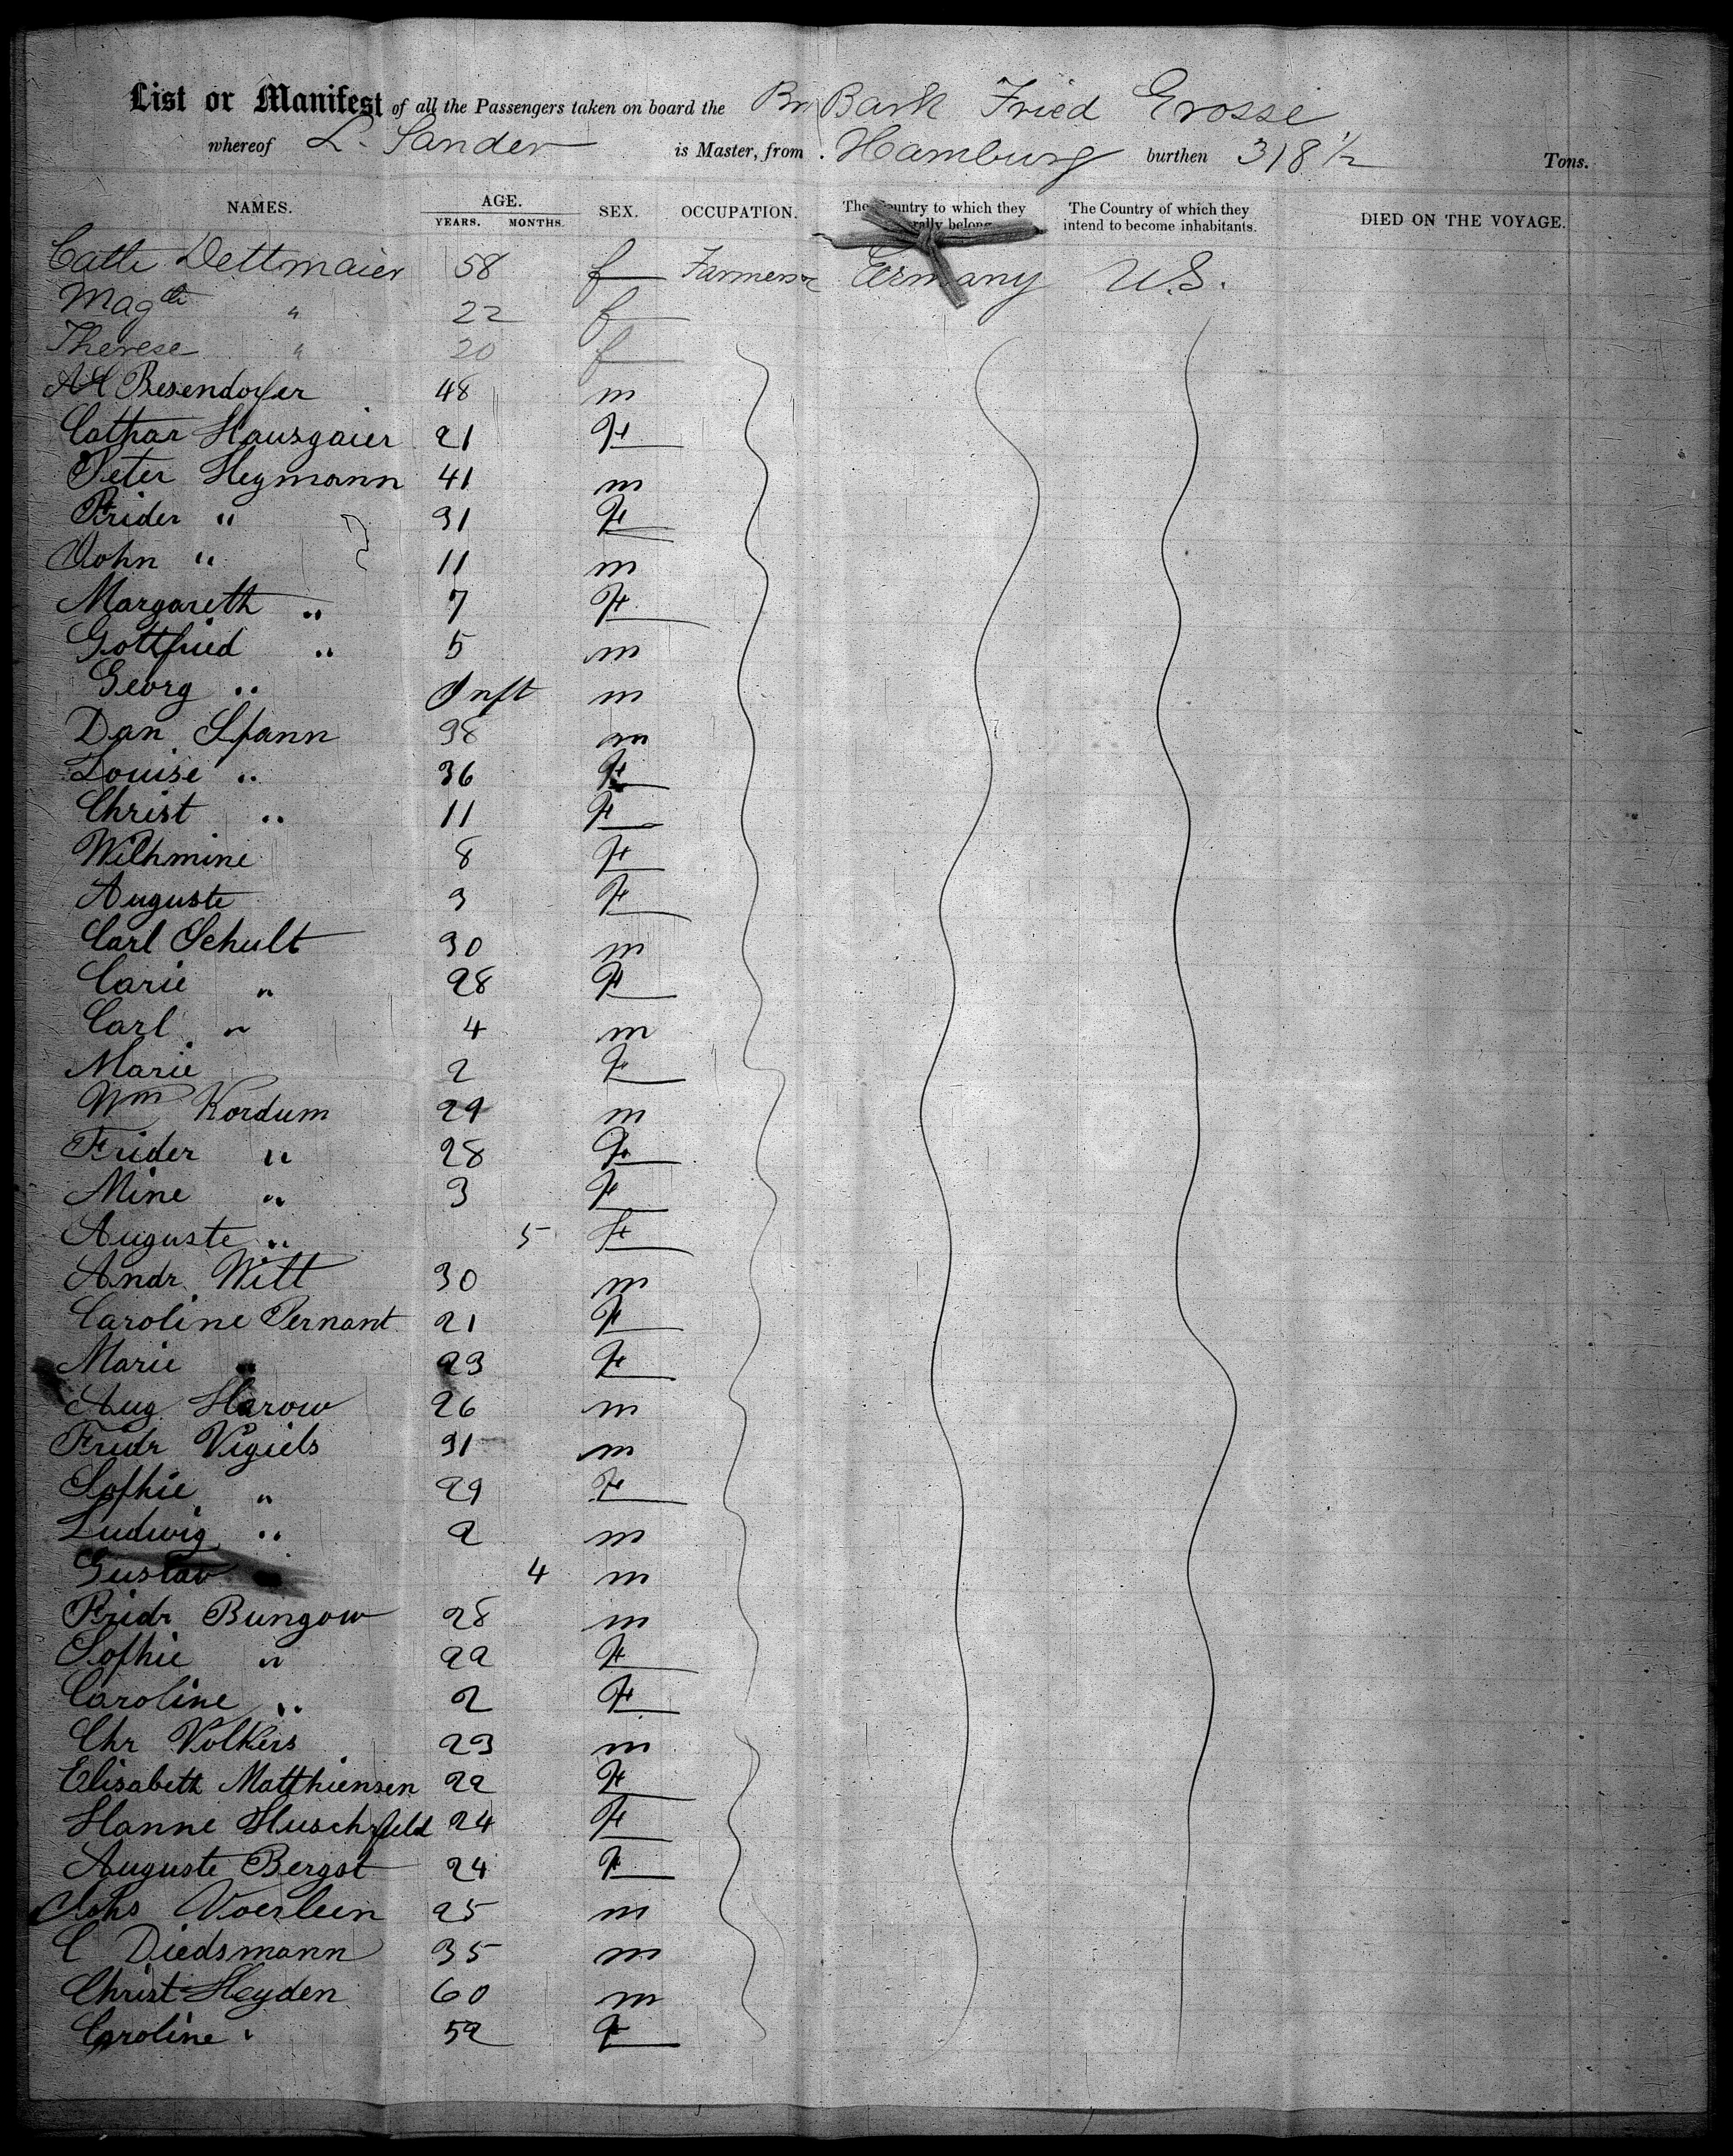 List or Manifest of all the Passengers taken on board the Br Bark Fried Grosse
whereof L. Sander is Master, from Hamburg burthen 318 1/2 Tons.
NAMES. AGE. YEARS. MONTHS. SEX. OCCUPATION. The Country to which they belong The Country of which they intend to become inhabitants. DIED ON THE VOYAGE.
Cathe Dettmaier 58 f Farmers Germany U.S.
Magth " 22 f
Therese " 20 f
Besendorfer 48 m
Cathar Hausgaier 21 F
Peter Heymann 41 m
Frider " 31 F
John " 11 m
Margareth " 7 F
Gottfried " 5 m
Georg " Inft m
Dan Spann 38 m
Louise " 36 F
Christ " 11 F
Wilhmine 8 F
Auguste 3 F
Carl Schult 30 m
Carie " 28 F
Carl " 4 m
Marie 2 F
Wm Kordum 29 m
Frider " 28 F
Mine " 3 F
Auguste " 5 F
Andr. Witt 30 m
Caroline Pernant 21 F
Marie " 23 F
Aug Harow 26 m
Fridr Vigiels 31 m
Sophie " 29 F
Ludwig " 2 m
Gustav 4 m
Fridr Bungow 28 m
Sophie " 22 F
Caroline " 2 F
Chr Volkers 23 m
Elisabeth Matthiensen 22 F
Hanne Huschfeld 24 F
Auguste Bergst 24 F
Johs Voerlein 25 m
C Diedsmann 35 m
Christ Heyden 60 m
Caroline " 52 F